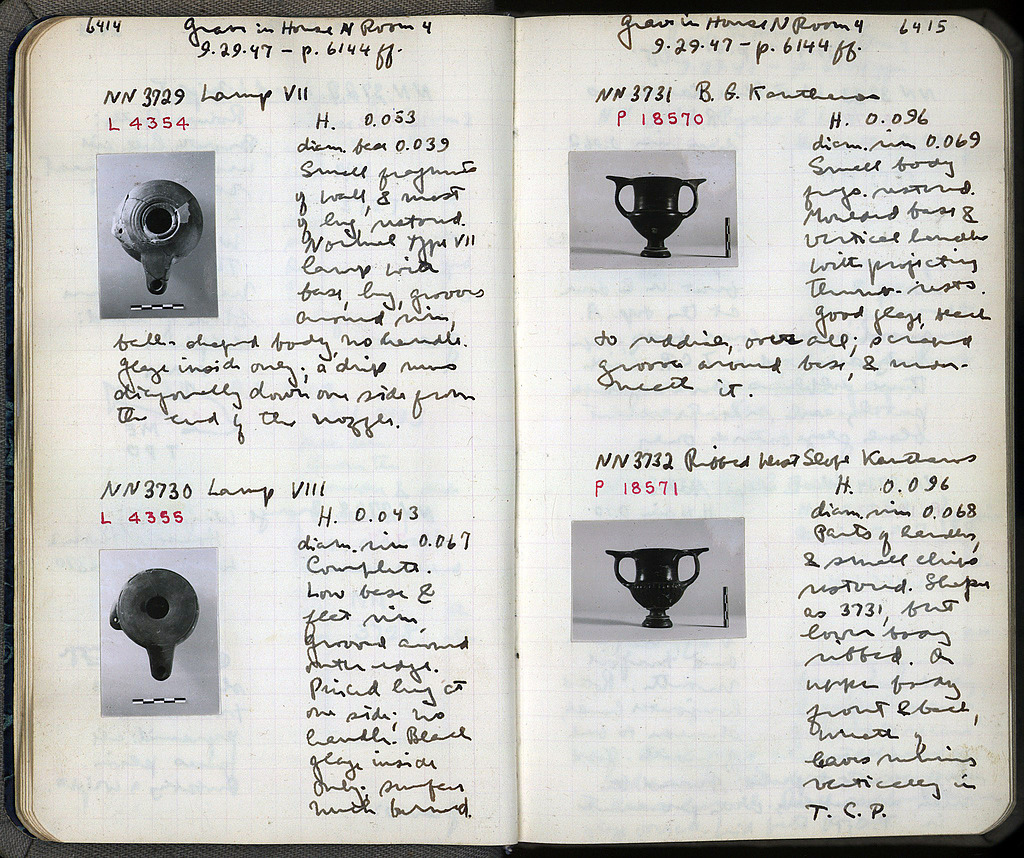 6414
Grave in House N Room 4
9.29.47 – p. 6144 ff.
NN 3729 Lamp VII
L 4354
H. 0.053
diam. base 0.039
Small fragments
of wall, & most
of lug, restored.
Normal type VII
lamp with
base, lug, grooves
around rim,
ball-shaped body, no handle.
Glaze inside only; a drip runs
diagonally down one side from
the end of the nozzle.
NN 3730 Lamp VIII
L 4355
H. 0.043
diam. rim 0.067
Complete.
Low base &
flat rim,
grooved around
outer edge.
Pierced lug at
one side; no
handle. Black
glaze inside
only; surface
much burned.
Grave in House N Room 4
6415
9.29.47 – p. 6144 ff.
NN 3731 B. G. Kantharos
P 18570
H. 0.096
diam. rim 0.069
Small body
frags. restored.
Moulded base &
vertical handles
with projecting
thumb-rests.
Good glaze, black
to reddish, over all; scraped
groove around base, & under-
neath it.
NN 3732 Ribbed West Slope Kantharos
P 18571
H. 0.096
diam. rim 0.068
Parts of handles,
& small chips
restored. Shape
as 3731, but
lower body
ribbed. On
upper body
front & back,
wreath of
leaves running
vertically in
T. C. P.